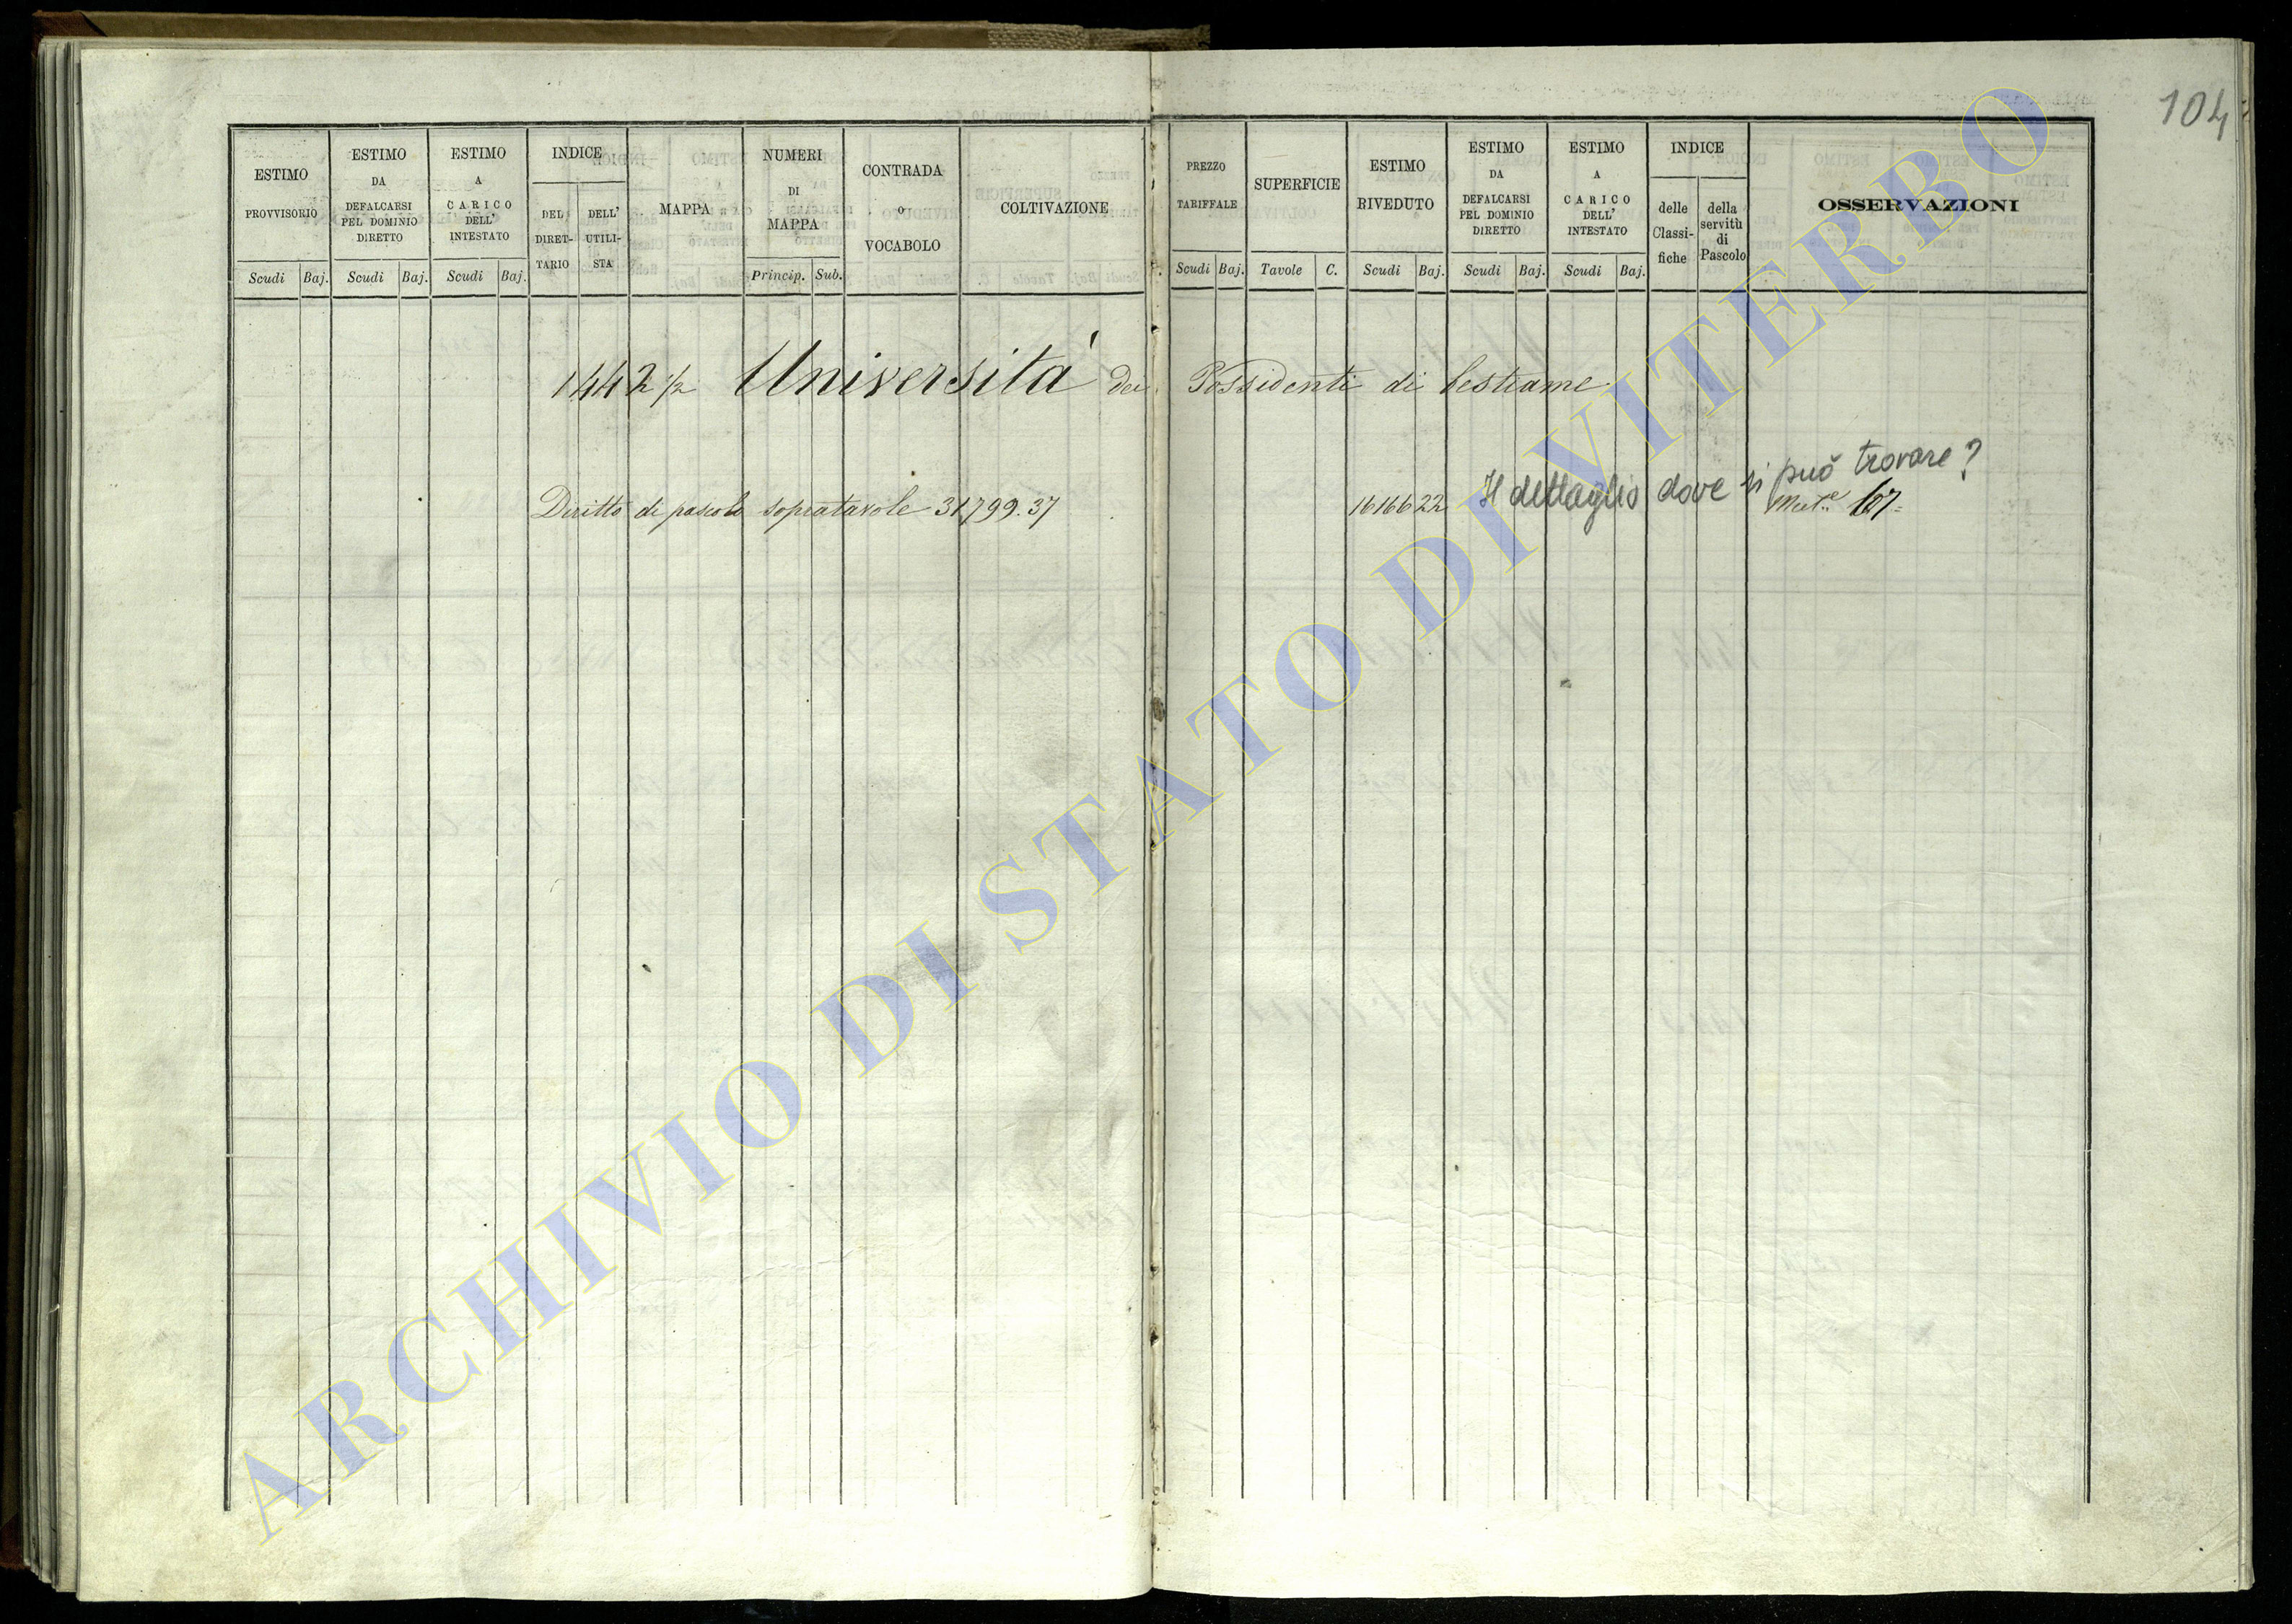 104
ESTIMO PROVVISORIO
Scudi Baj.
ESTIMO DA DEFALCARSI PEL DOMINIO DIRETTO
Scudi Baj.
ESTIMO A CARICO DELL' INTESTATO
Scudi Baj.
INDICE
DEL DIRET-TARIO
DELL' UTILI-STA
MAPPA
NUMERI DI MAPPA
Princip. Sub.
CONTRADA o VOCABOLO
COLTIVAZIONE
PREZZO TARIFFALE
Scudi Baj.
SUPERFICIE
Tavole C.
ESTIMO RIVEDUTO
Scudi Baj.
ESTIMO DA DEFALCARSI PEL DOMINIO DIRETTO
Scudi Baj.
ESTIMO A CARICO DELL' INTESTATO
Scudi Baj.
INDICE
delle Classi-fiche
della servitù di Pascolo
OSSERVAZIONI
1442 1/2 Università dei Possidenti di bestiame
Il dettaglio dove si può trovare?
Diritto di pascolo sopratavole 31799.37 16166 22
107
ARCHIVIO DI STATO DI VITERBO